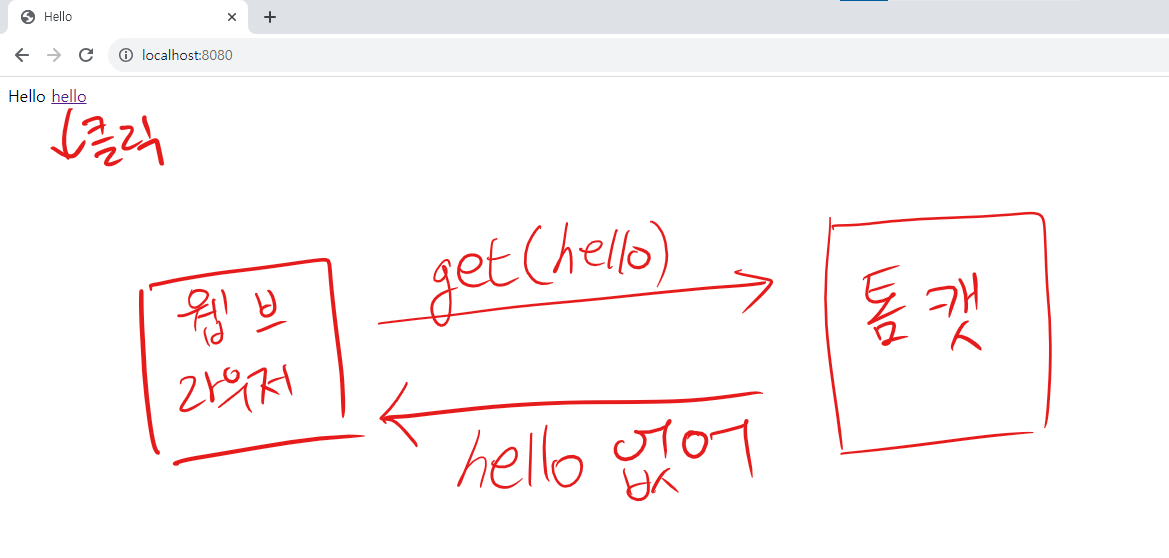 Hello
localhost:8080
Hello hello
클릭
get(hello)
웹 브
라우저
톰캣
hello 없어